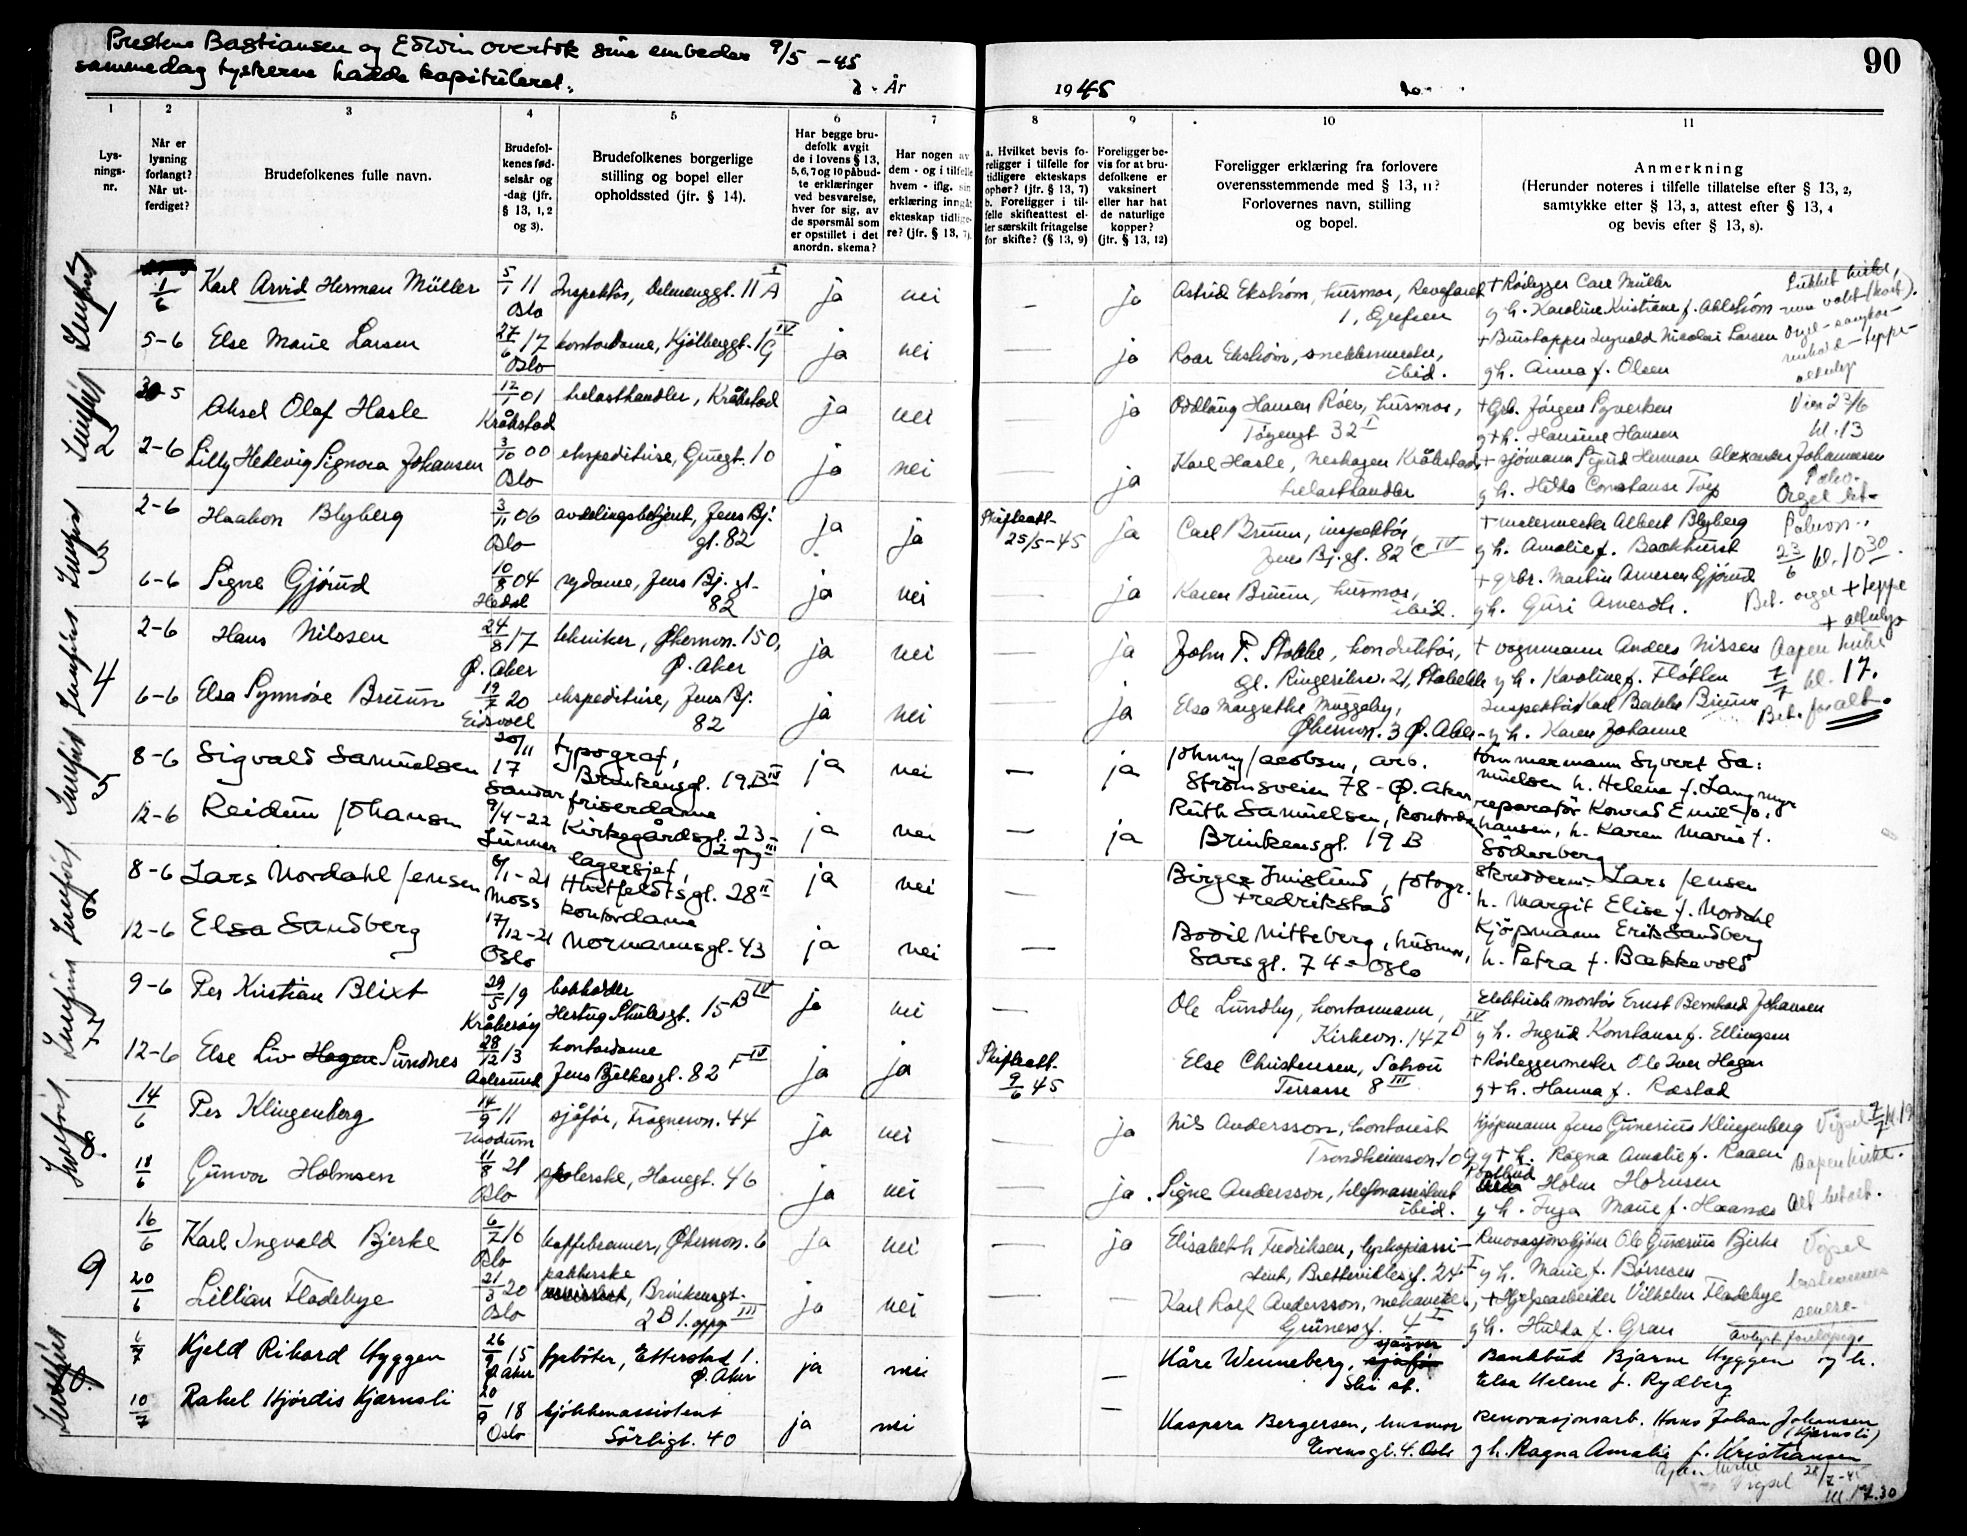 Prestene Bastiansen og Edwin overtok sine embeder 9/5 -45
sammedag tyskerne hadde kapituleret.
90
2. År
1945
1
2
3
4
5
6
7
8
9
10
11
Lys-
nings-
nr.
Når er
lysning
forlangt?
Når ut-
ferdiget?
Brudefolkenes fulle navn.
Brudefol-
kenes fød-
selsår og
-dag (jfr.
§ 13, 1, 2
og 3).
Brudefolkenes borgerlige
stilling og bopel eller
opholdssted (jfr. § 14).
Har begge bru-
defolk avgit
de i lovens § 13,
5, 6, 7 og 10 påbud-
te erklæringer
ved besvarelse,
hver for sig, av
de spørsmål som
er opstillet i det
anordn. skema?
Har nogen av
dem - og i tilfelle
hvem - iflg. sin
erklæring inngåt
ekteskap tidlige-
re? (jfr. § 13, 7).
a. Hvilket bevis fo-
religger i tilfelle for
tidligere ekteskaps
ophør? (jfr. § 13, 7)
b. Foreligger i til-
felle skifteattest el-
ler særskilt fritagelse
for skifte? (§ 13, 9)
Foreligger be-
vis for at bru-
defolkene er
vaksinert
eller har hat
de naturlige
kopper?
(jfr. § 13, 12)
Foreligger erklæring fra forlovere
overensstemmende med § 13, 11?
Forlovernes navn, stilling
og bopel.
Anmerkning
(Herunder noteres i tilfelle tillatelse efter § 13, 2,
samtykke efter § 13, 3, attest efter § 13, 4
og bevis efter § 13, 8).
1
1/6
Karl Arvid Herman Müller
5/1 11
Oslo
Inspektør, Delenenggt. 11 A I
ja
nei
—
ja
Astrid Ekstrøm, husmor, Revefaret
1, Grefsen
+ Rørlegger Carl Müller
g h. Karoline Kristiane f. Ahlstrøm
5-6
Else Marie Larsen
27/6 17
Oslo
kontordame, Kjølberggt. 1 G IV
ja
nei
—
ja
Roar Ekstrøm, snekkermester,
ibid.
Ingvald Nicolai Larsen
g h. Anna f. Olsen
2
30-5
Aksel Olaf Hasle
12/1 01
Kråkstad
trelasthandler, Kråkstad
ja
nei
—
ja
Oddlaug Hansen Röer, husmor,
Tøyengt 32 I
+ Grb. Jørgen Syversen
g + h. Hansine Hansen
Vies 23/6
kl. 13
2-6
Lilly Hedevig Signora Johansen
3/10 00
Oslo
ekspeditrise, Grugt. 10
ja
nei
—
ja
Karl Hasle, Kråkstad,
trelasthandler
+ sjömann Sigurd Herman Alexander Johannesen
g h. Hilda Constanse
3
2-6
Haakon Blyberg
3/11 06
Oslo
avdelingsbetjent, Jens Bj.
gt. 82
ja
ja
Skifteatt.
25/5-45
ja
Carl Bruun, inspektör,
Jens Bj. gt. 82 C IV
Albert Blyberg
g h. Amalie f. Backhurst
23/6 kl. 10 30.
6-6
Signe Gjörud
10/8 04
Hedal
sydame, Jens Bj. gt.
82
ja
nei
—
ja
Karen Bruun, husmor,
ibid.
+ grbr. Martin Arnesen Gjörud
g h. Guri Arnesdtr.
Bet. orgel + teppe
4
2-6
Hans Nilssen
24/8 17
Ø. Aker
tekniker, Økernvn. 150,
Ø. Aker
ja
nei
ja
John P. Stokke, konduktör,
gl. Ringeriksv. 21, Stabekk
+ vognmann Anders Nissen
g h. Karoline f. Fløtten
Aapen kirke
7/7 kl. 17.
6-6
Elsa Synnöve Bruun
19/7 20
Eidsvoll
ekspeditrise, Jens Bj.
82
ja
nei
ja
Elsa Margrethe Muggeby,
Økernvn. 3 Ø. Aker
Inspektör Karl Bakke Bruun
g h. Karen Johanne
Bet. for alt.
5
8-6
Sigvald Samuelsen
20/11
17
Sandar
typograf,
Brinkensgt. 19 B III
ja
nei
—
ja
Johnny Jacobsen, arb.
Strömsveien 78 - Ø. Aker
tömmermann Syvert Sa-
muelsen h. Helene f. Langmyr
12-6
Reidun Johansen
9/4-22
Lunner
friserdame
Kirkegårdsgt. 23-
2 opg III
ja
nei
—
ja
Ruth Samuelsen, kontorda
Brinkensgt. 19 B
reparatör Konrad Emil Jo-
hansen, h. Karen Marie f.
Söderberg
6
8-6
Lars Nordahl Jensen
6/1-21
Moss
lagersjef,
Huitfeldtsgt. 28 II
ja
nei
—
Birger Smislund, fotogr.
Fredrikstad
Lars Jensen
h. Margit Elise f. Nordahl
12-6
Elsa Sandberg
17/12-21
Oslo
kontordame
Normannsgt. 43
ja
nei
—
Bodil Nitteberg, husmor,
Sarsgt. 74 - Oslo
Kjöpmann Erik Sandberg
h. Petra f. Bækkevold
7
9-6
Per Kristian Blixt
29/5 19
Kråkeröy
bokholder
Hertug Skulesgt. 15 B IV
ja
nei
—
Ole Lundby, kontormann,
Kirkevn. 147 D IV
Elektrisk montör Ernst Bernhard Johansen
g h. Ingrid Konstanse f. Ellingsen
12-6
Else Liv Hagen Sundnes
28/12 13
Aalesund
kontordame
Jens Bjelkesgt. 82 F IV
ja
ja
Skifteatt.
9/6 45
Else Christensen,
Terrasse 8 III
+ Rörleggermester Ole Iver Hagen
g + h. Hanna f. Ræstad
8
14/6
Per Klingenberg
14/9 11
Modum
sjåför, Frognervn. 44
ja
nei
—
ja
Nils Andersson, kontorist
Trondheimsvn. 10 G
Kjöpmann Jens Gunerius Klingenberg
g + h. Ragna Amalie f. Raaen
Aapen kirke.
18/6
Gunvor Holmsen
11/8 21
Oslo
Hauegt. 46
ja
nei
—
ja.
Signe Andersson, telefonassistent
ibid.
Postbud
Holm Holmsen
g h. Inga Marie f. Haanæs
Alt betalt.
9
16/6
Karl Ingvald Bjerke
6/7 16
Oslo
kaffebrenner, Økernvn. 6
ja
nei
—
ja
Elisabeth Fredriksen, lyskopiassi-
stent, Brettevillesgt. 24 I
Renovasjonskjörer Ole Gunerius Bjerke
g h. Marie f. Börresen
Vigsel
bestemmes
senere.
20/6
Lillian Fladebye
21/3 20
Oslo
pakkerske
Brinkensgt.
2 B 1. opg III
ja
nei
—
Karl Rolf Andersson, mekaniker,
Grünersgt. 4 I
+ Hjelpearbeider Vilhelm Fladebye
g h. Hulda f. Gran
avlyst foreløpig.
6/7
Kjeld Rikard Hyggen
26/9 15
Ø. Aker
typböter, Etterstad 1.
Ø. Aker
ja
nei
—
Kåre Wenneberg,
Ski st.
Bankbud Bjarne Hyggen og h.
Elsa Helene f. Rydberg
10/7
Rakel Hjördis Kjærnsli
20/9 18
Oslo
kjökkenassistent
Sörligt. 40
ja
nei
—
Kaspara Bergersen, husmor
Evensgt. 4. Oslo
Renovasjonsarb. Hans Johan Johansen
(Kjærnsli)
g h. Ragna Amalie f. Kristiansen
Vigsel 28/7-45
kl. 17.30